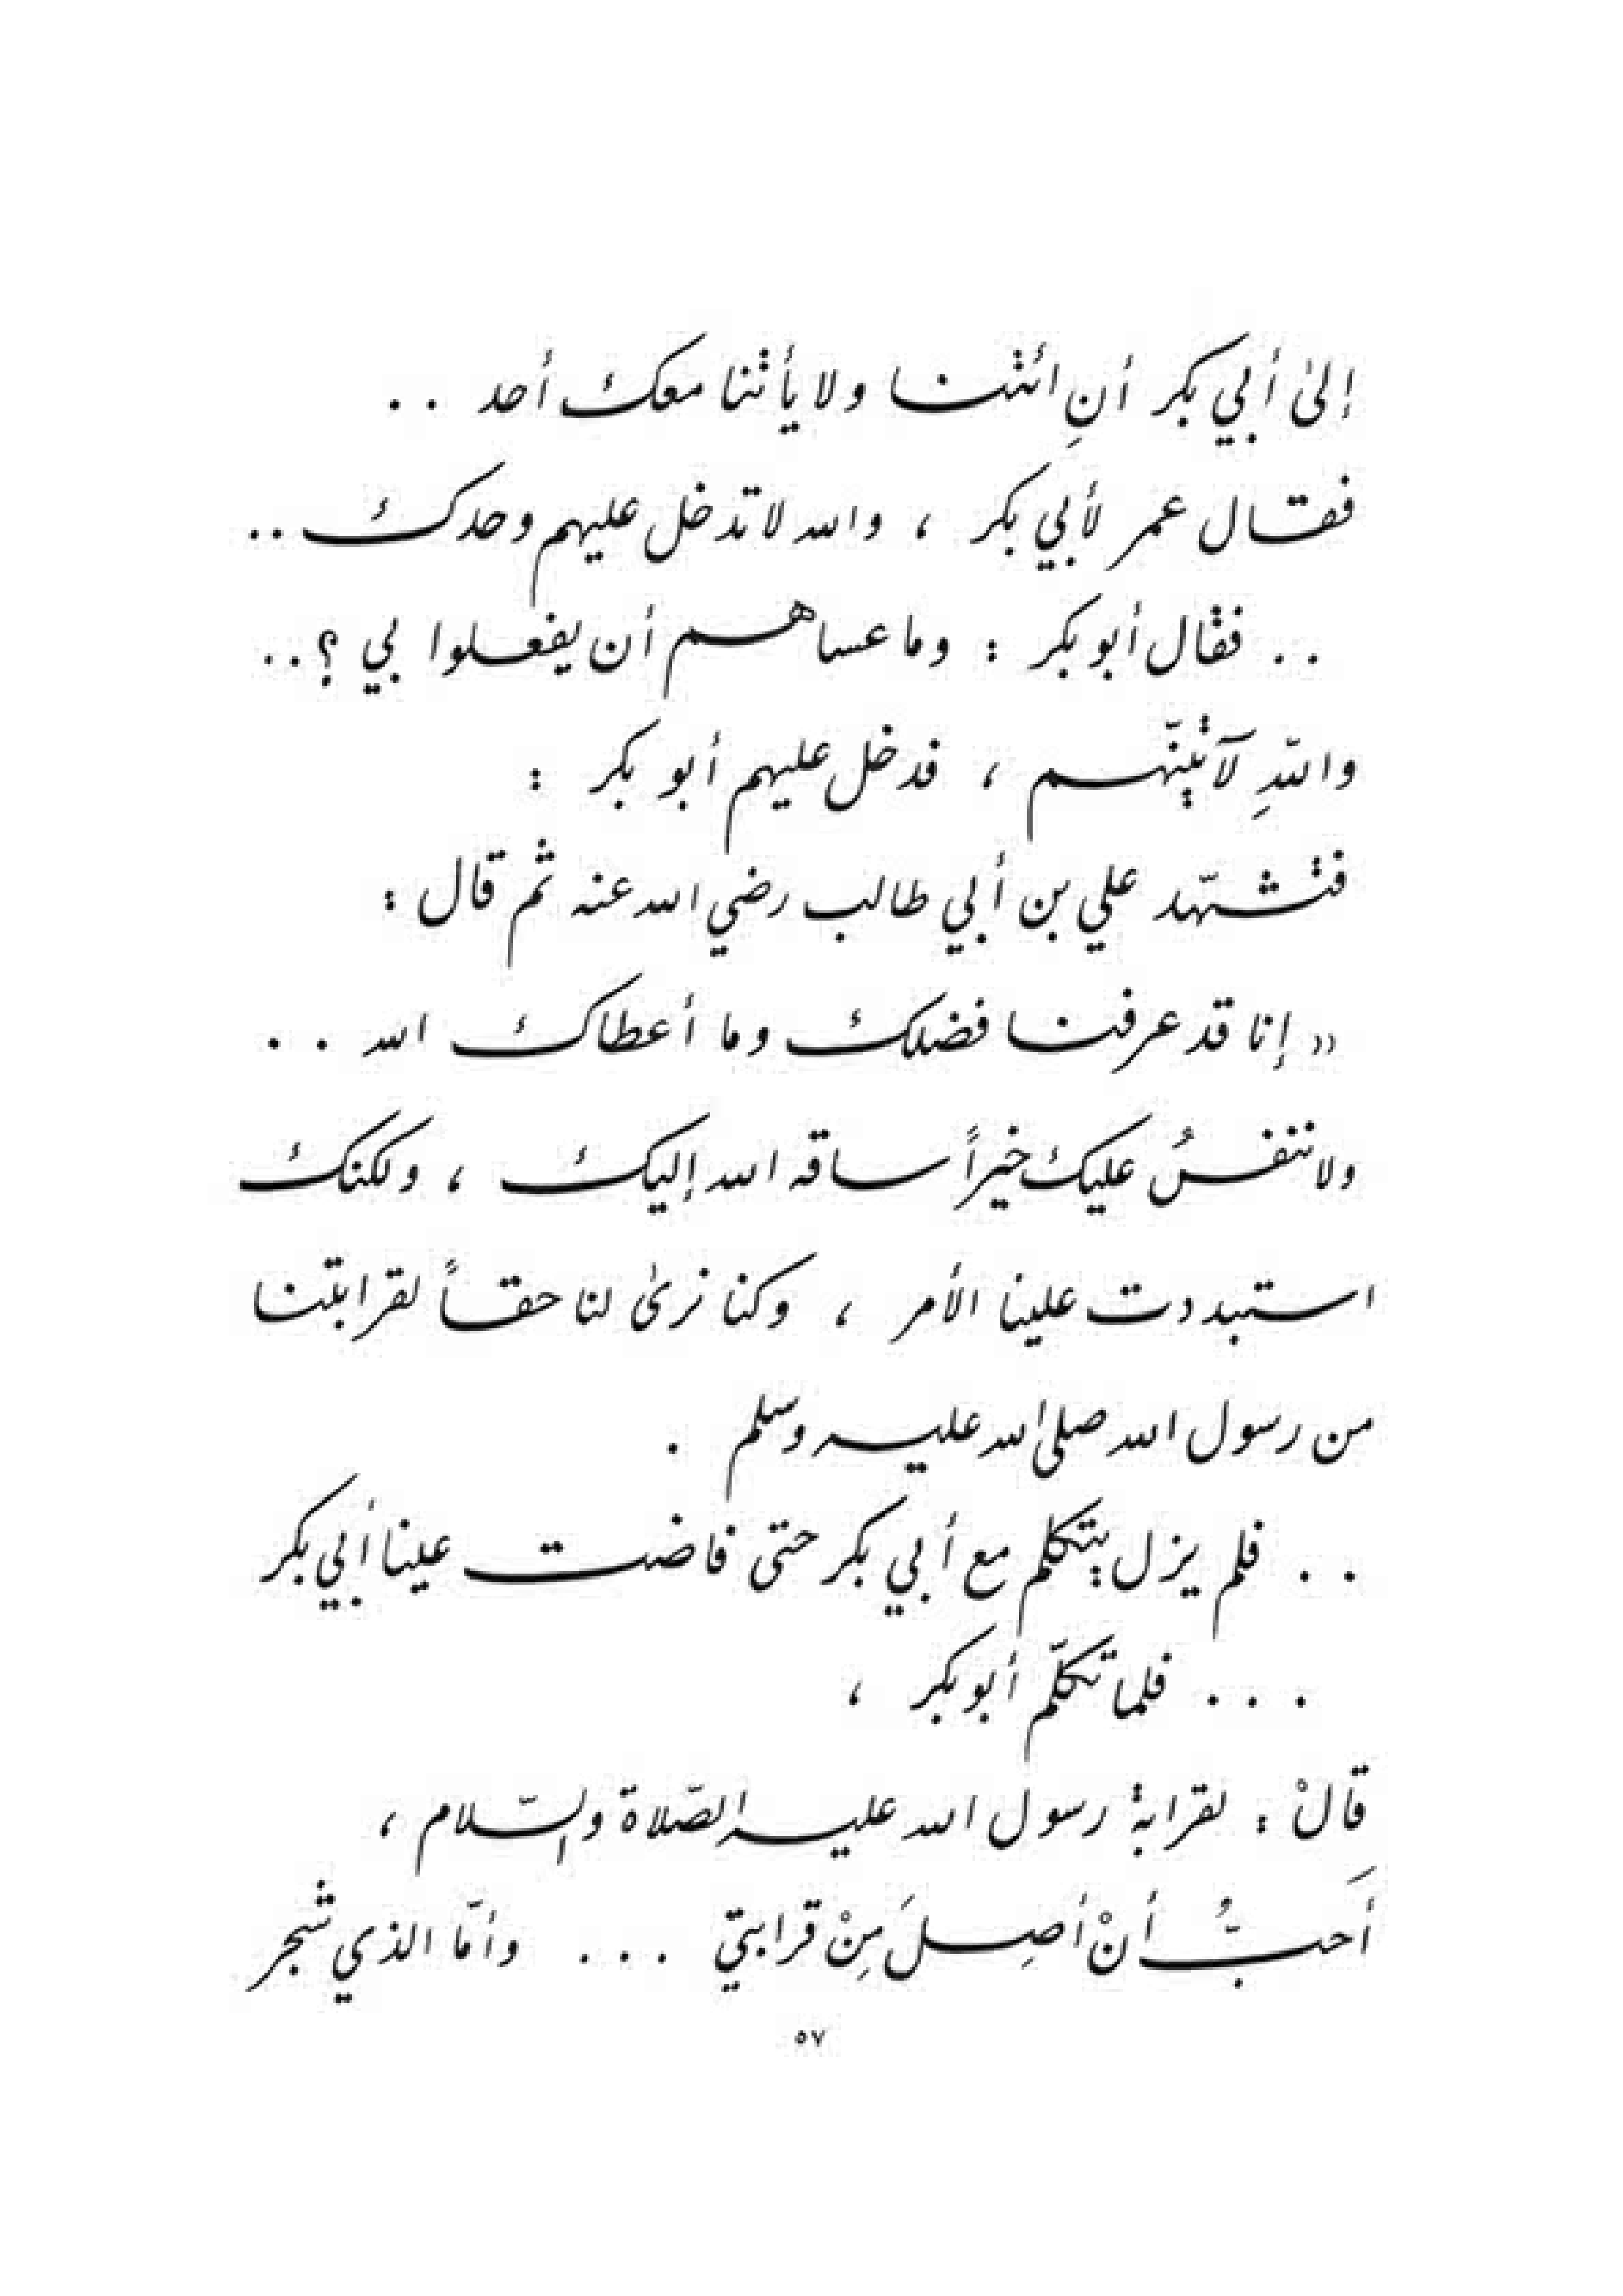 إلىٰ أبي بكر أنِ ائتنا ولا يأتنا معك أحد ..
فقال عمر لأبي بكر ، والله لا تدخل عليهم وحدك ..
.. فقال أبو بكر : وما عساهم أن يفعلوا بي ؟ ..
واللّهِ لآتينّهم ، فدخل عليهم أبو بكر :
فتشهّد علي بن أبي طالب رضي الله عنه ثم قال :
« إنا قد عرفنا فضلك وما أعطاك الله ..
ولا ننفسُ عليك خيراً ساقه الله إليك ، ولكنك
استبددت علينا الأمر ، وكنا نرىٰ لنا حقاً لقرابتنا
من رسول الله صلى الله عليه وسلم .
.. فلم يزل يتكلم مع أبي بكر حتى فاضت علينا أبي بكر
... فلما تكلّم أبو بكر ،
قالْ : لقرابة رسول الله عليه الصّلاة والسّلام ،
أَحبُّ أنْ أصِلَ مِنْ قرابتي ... وأمّا الذي شجر
٥٧